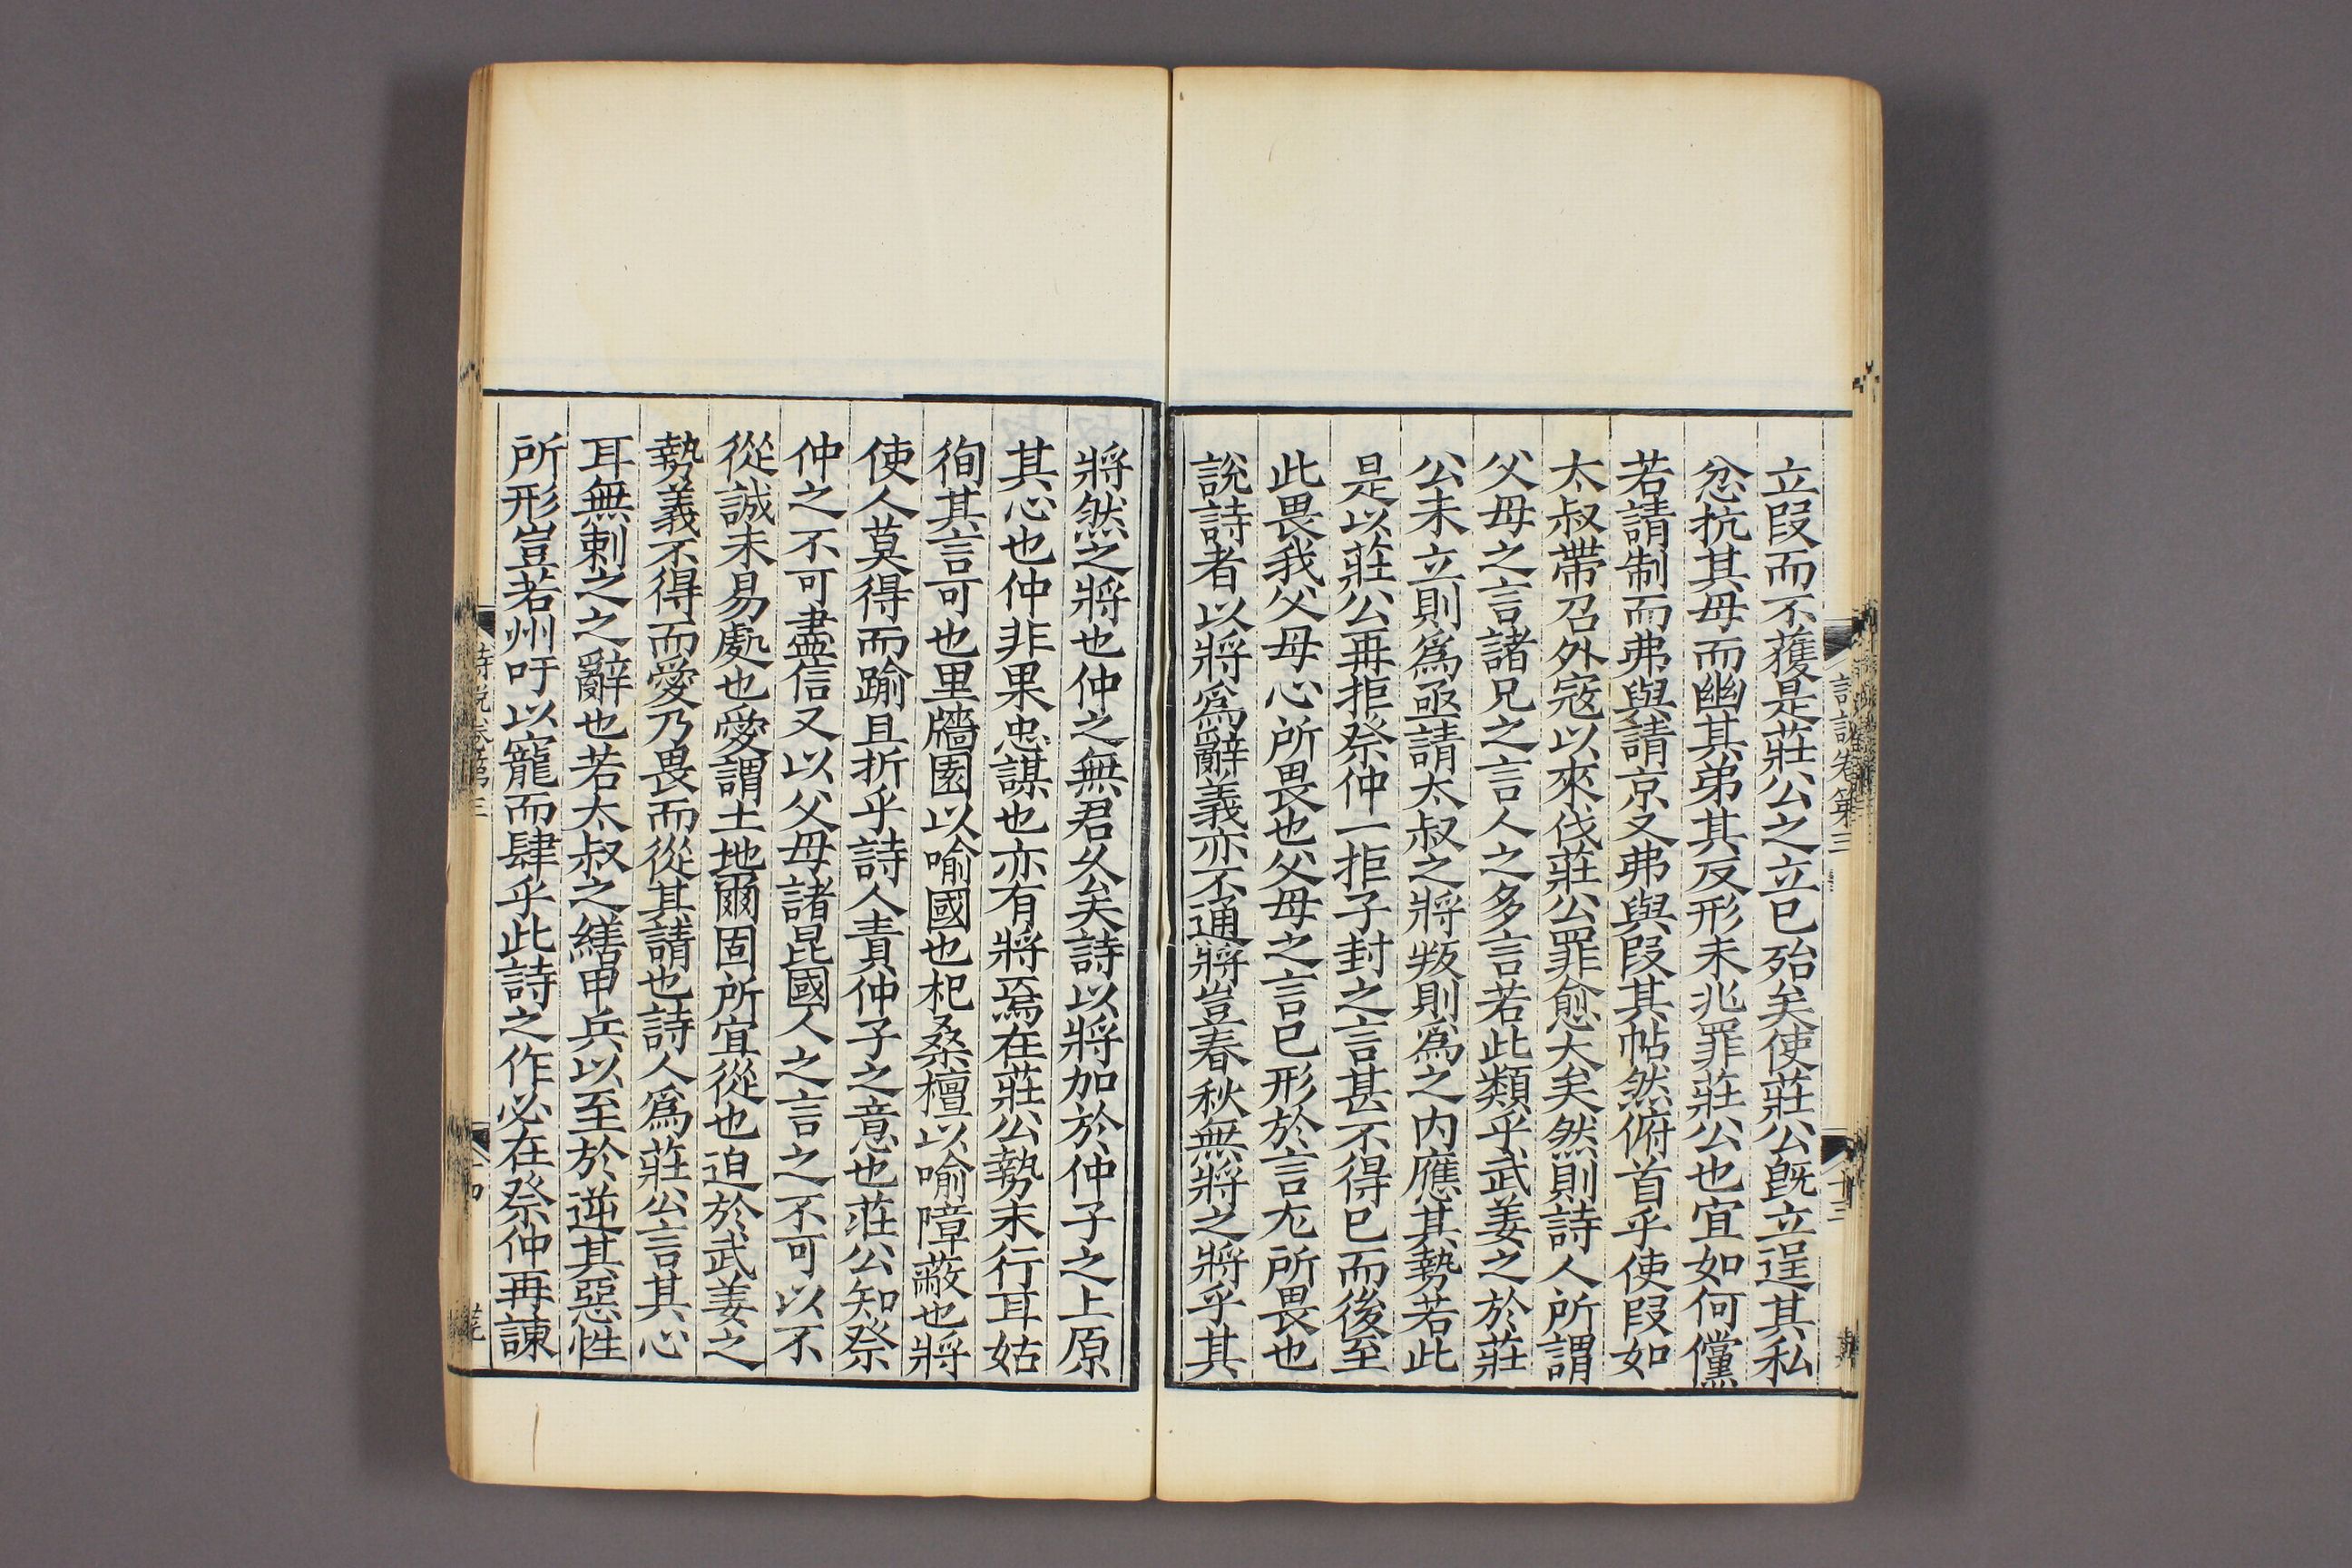 立叚而不獲是莊公之立已殆矣使莊公旣立逞其私
忿抗其母而幽其弟其反形未兆罪莊公也宜如何儻
若請制而弗與請京又弗與叚其帖然俯首乎使叚如
太叔帶召外寇以來伐莊公罪愈大矣然則詩人所謂
父母之言諸兄之言人之多言若此類乎武姜之於莊
公未立則爲亟請太叔之將叛則爲之内應其勢若此
是以莊公再拒祭仲一拒子封之言甚不得已而後至
此畏我父母心所畏也父母之言已形於言尢所畏也
說詩者以將爲辭義亦不通將豈春秋無將之將乎其
詩說卷第三
十三
將然之將也仲之無君久矣詩以將加於仲子之上原
其心也仲非果忠謀也亦有將焉在莊公勢未行耳姑
徇其言可也里牆園以喻國也杞桑檀以喻障蔽也將
使人莫得而踰且折乎詩人責仲子之意也莊公知祭
仲之不可盡信又以父母諸昆國人之言之不可以不
從誠未易處也愛謂土地爾固所宜從也迫於武姜之
勢義不得而愛乃畏而從其請也詩人爲莊公言其心
耳無剌之之辭也若太叔之繕甲兵以至於逆其惡性
所形豈若州吁以寵而肆乎此詩之作必在祭仲再諫
詩說卷第三